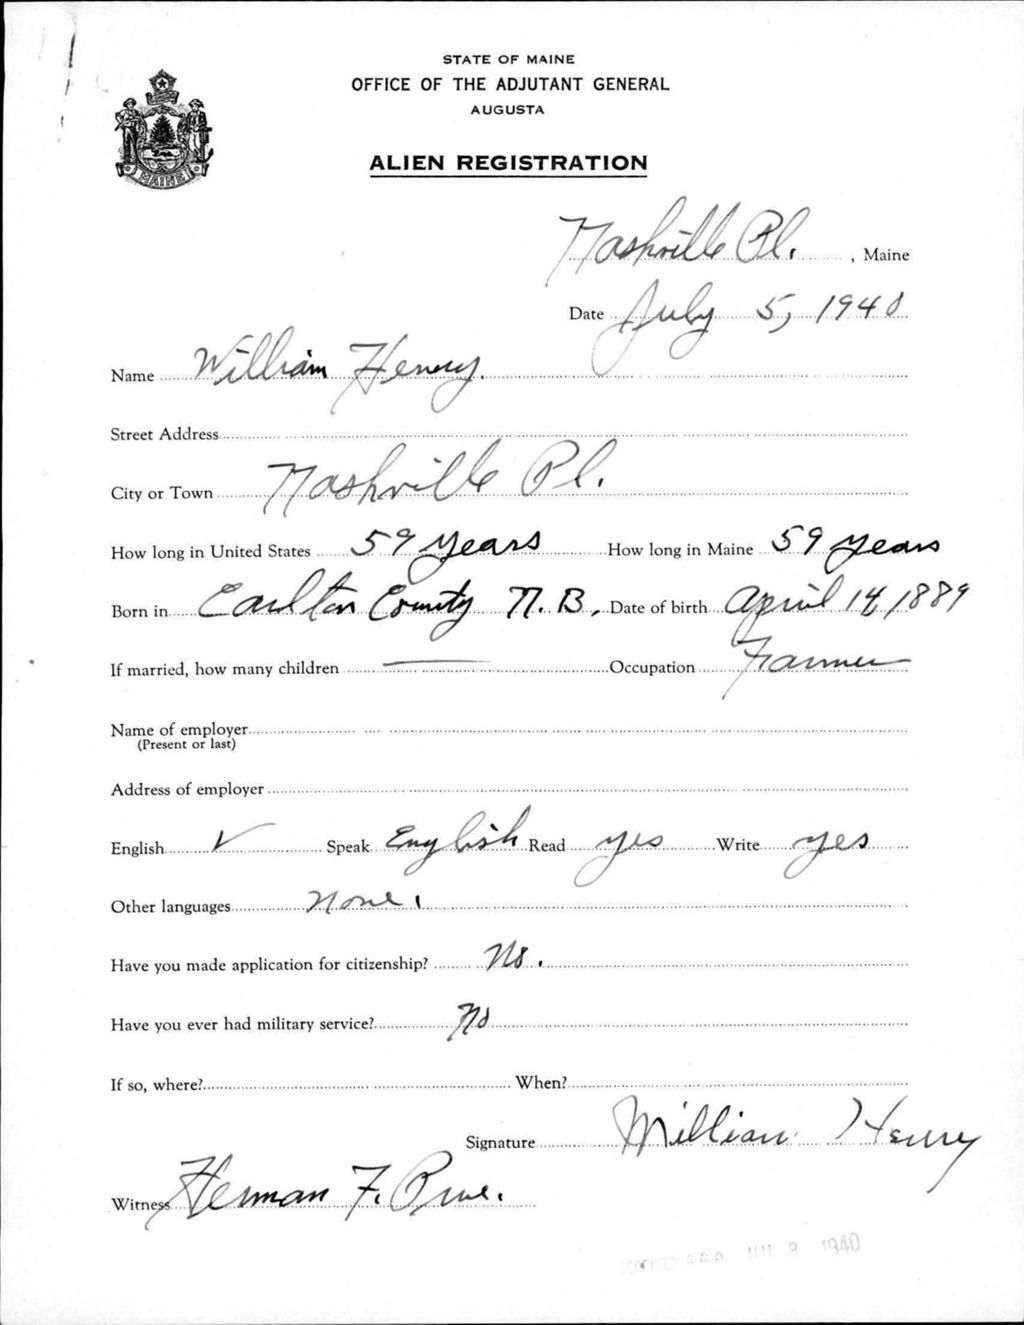 STATE OF MAINE
OFFICE OF THE ADJUTANT GENERAL
AUGUSTA
MAINE
ALIEN REGISTRATION
Nashville Pl. , Maine
Date July 5, 1940
Name William Henry.
Street Address
City or Town Nashville Pl.
How long in United States 59 years How long in Maine 59 years
Born in Carlton County N.B. Date of birth April 14, 1889
If married, how many children — Occupation Farmer
Name of employer
(Present or last)
Address of employer
English ✓ Speak English Read yes Write yes
Other languages None.
Have you made application for citizenship? No.
Have you ever had military service? No
If so, where? When?
Signature William Henry
Witness Herman F.
1940